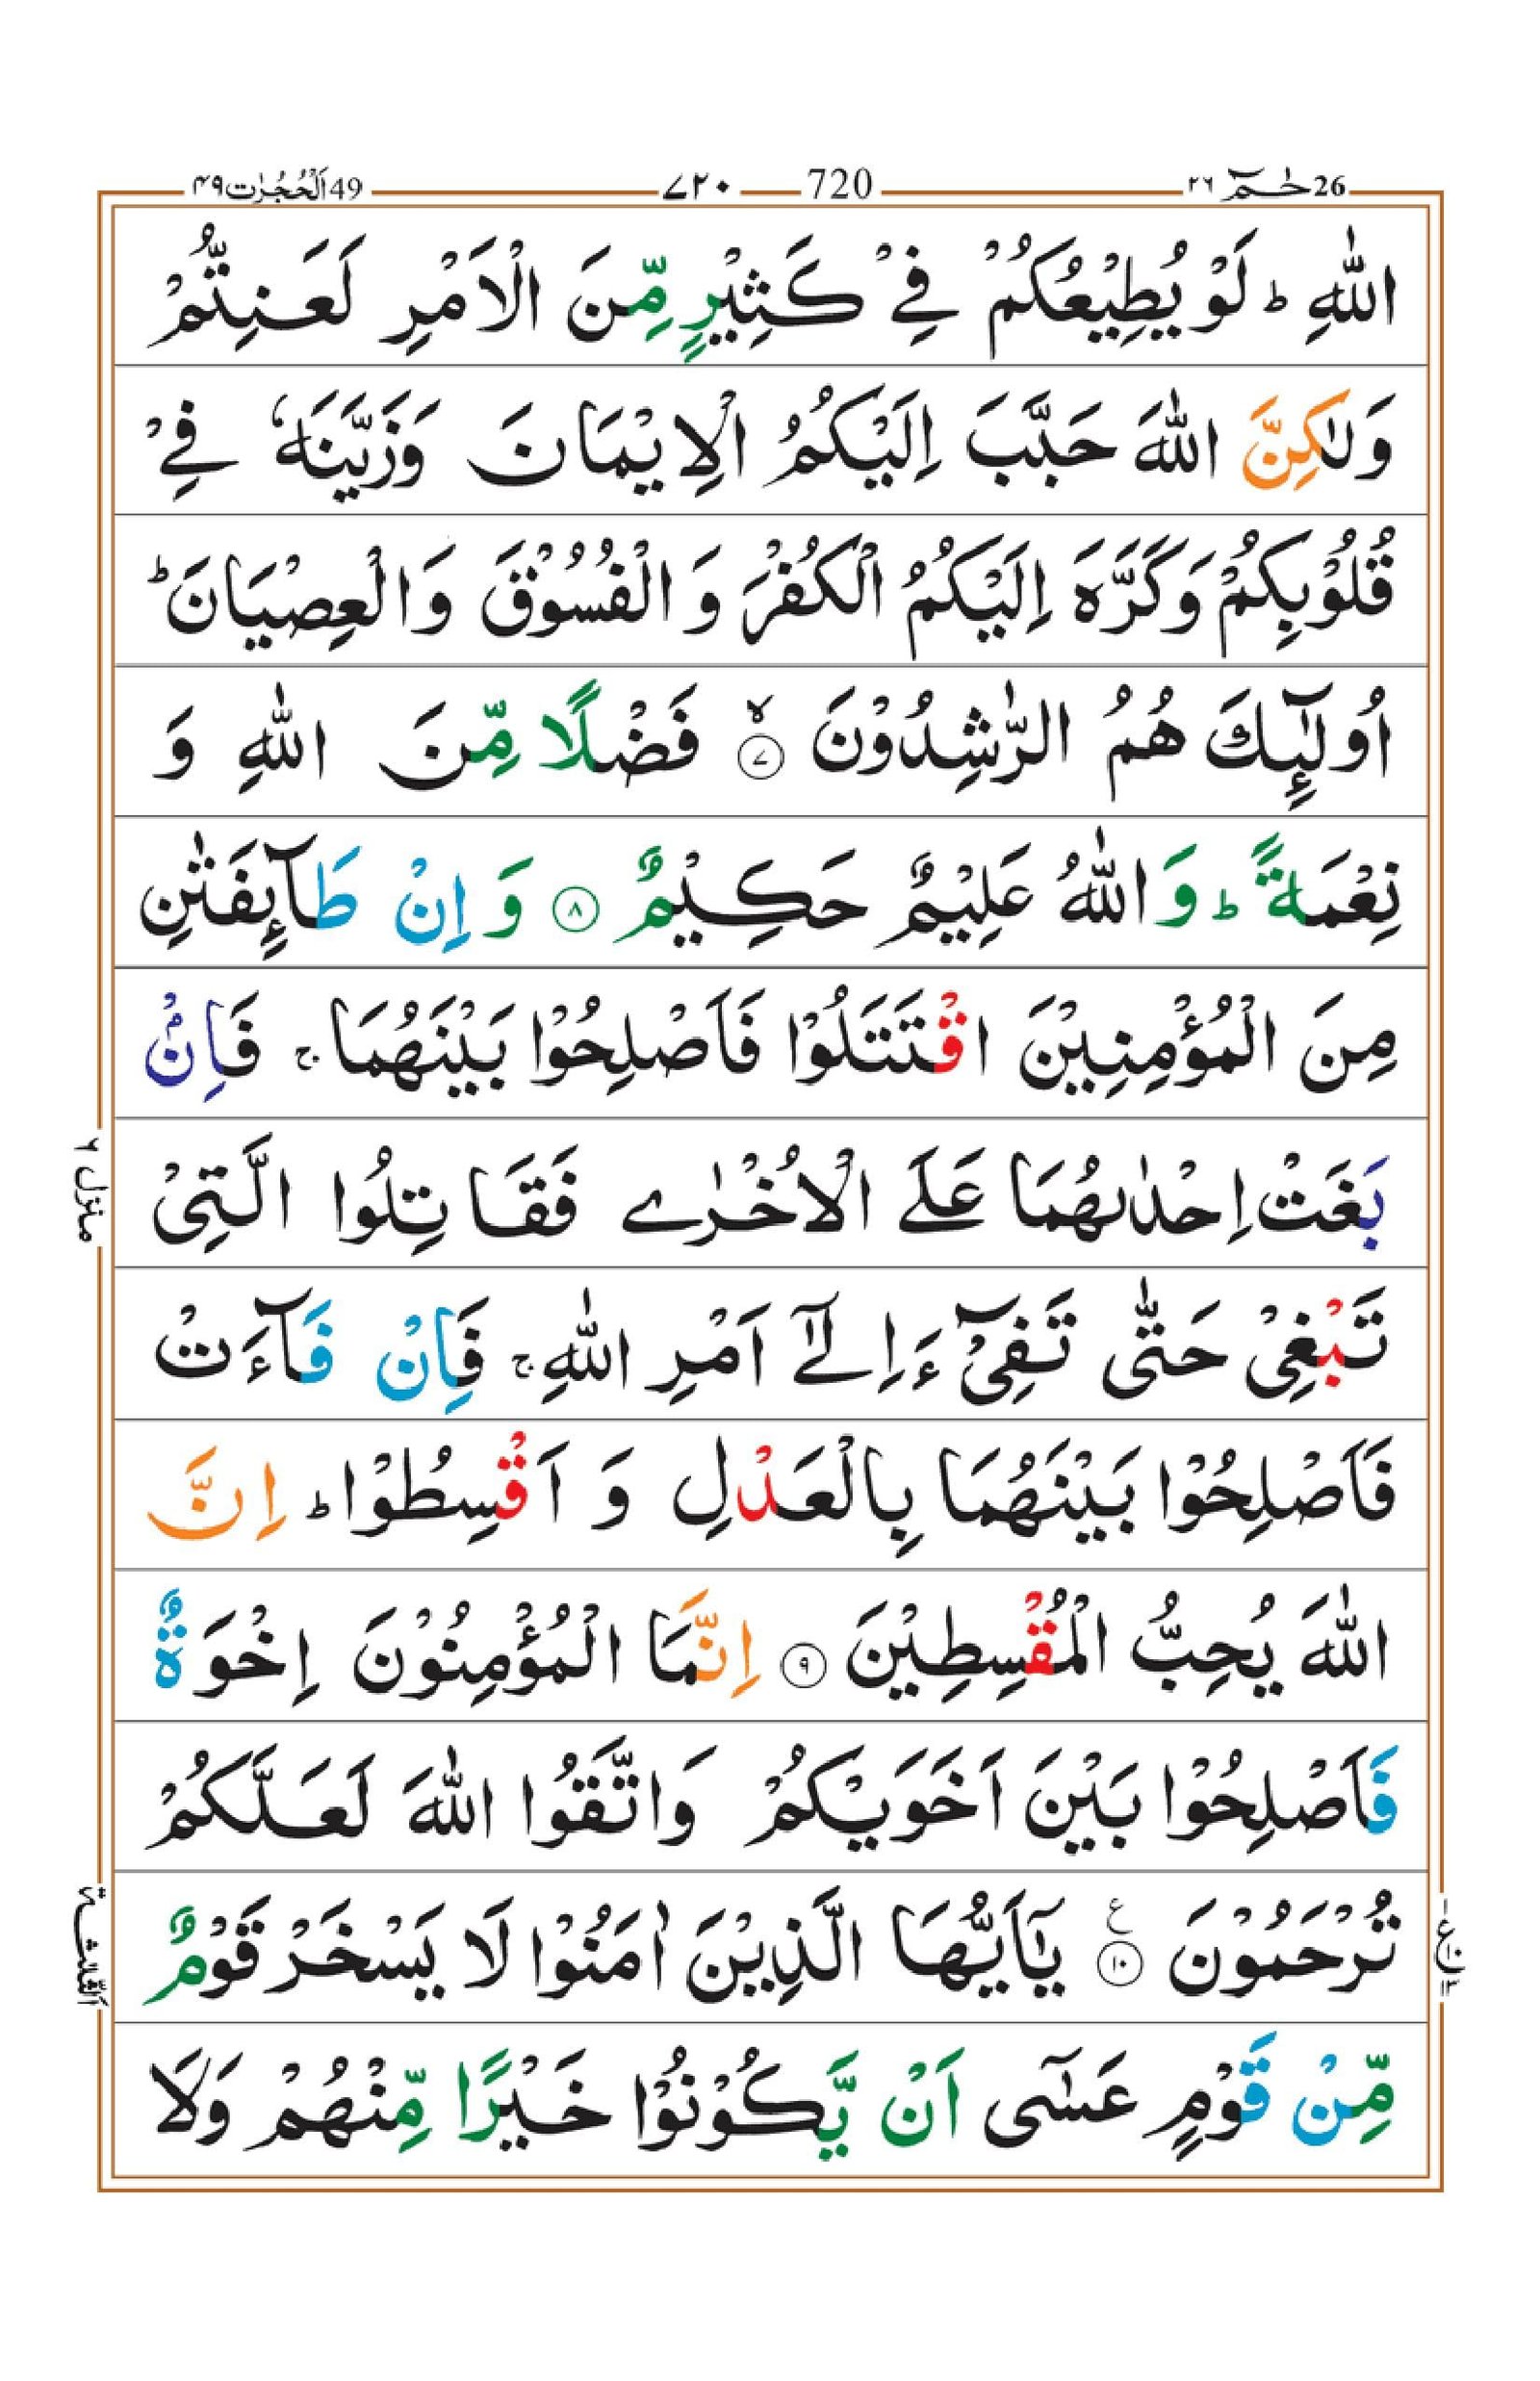 26 حٰـمٓ ٢٦ 720 ٧٢٠ 49 اَلْحُجُرٰت ٤٩
اللّٰهِ ؕ لَوْ يُطِيْعُكُمْ فِيْ كَثِيْرٍ مِّنَ الْاَمْرِ لَعَنِتُّمْ
وَلٰكِنَّ اللّٰهَ حَبَّبَ اِلَيْكُمُ الْاِيْمَانَ وَزَيَّنَهٗ فِيْ
قُلُوْبِكُمْ وَكَرَّهَ اِلَيْكُمُ الْكُفْرَ وَالْفُسُوْقَ وَالْعِصْيَانَ ؕ
اُولٰٓئِكَ هُمُ الرّٰشِدُوْنَ ۙ ٧ فَضْلًا مِّنَ اللّٰهِ وَ
نِعْمَةً ؕ وَاللّٰهُ عَلِيْمٌ حَكِيْمٌ ٨ وَ اِنْ طَآئِفَتٰنِ
مِنَ الْمُؤْمِنِيْنَ اقْتَتَلُوْا فَاَصْلِحُوْا بَيْنَهُمَا ۚ فَاِنْۢ
بَغَتْ اِحْدٰىهُمَا عَلَي الْاُخْرٰي فَقَاتِلُوا الَّتِيْ
تَبْغِيْ حَتّٰى تَفِيْٓءَ اِلٰٓي اَمْرِ اللّٰهِ ۚ فَاِنْ فَآءَتْ
فَاَصْلِحُوْا بَيْنَهُمَا بِالْعَدْلِ وَ اَقْسِطُوْا ؕ اِنَّ
اللّٰهَ يُحِبُّ الْمُقْسِطِيْنَ ٩ اِنَّمَا الْمُؤْمِنُوْنَ اِخْوَةٌ
فَاَصْلِحُوْا بَيْنَ اَخَوَيْكُمْ وَاتَّقُوا اللّٰهَ لَعَلَّكُمْ
تُرْحَمُوْنَ ١٠ ع يٰٓاَيُّهَا الَّذِيْنَ اٰمَنُوْا لَا يَسْخَرْ قَوْمٌ
مِّنْ قَوْمٍ عَسٰٓى اَنْ يَّكُوْنُوْا خَيْرًا مِّنْهُمْ وَلَا
منزل ٦
اَلثّلٰثة
ع ١٠ ١٣